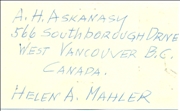 A. H. ASKANASY
566 SOUTHBOROUGH DRIVE
WEST VANCOUVER B.C.
CANADA.
HELEN A. MAHLER